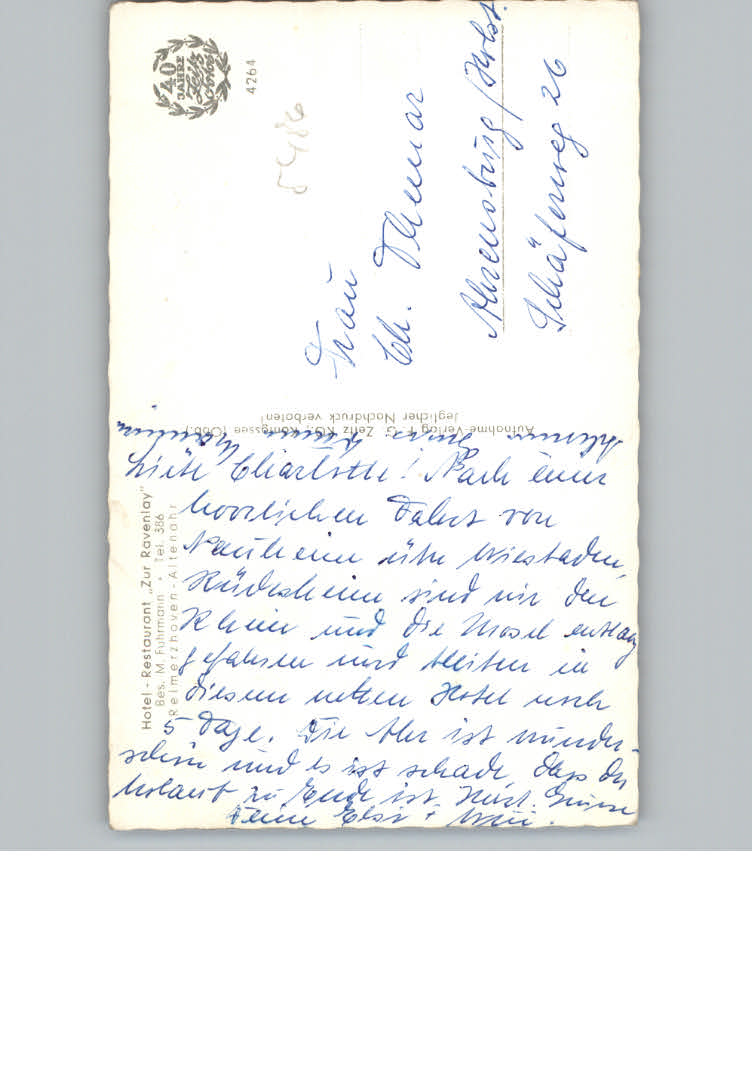 Hotel - Restaurant „Zur Ravenlay"
Bes. M. Fuhrmann • Tel. 386
Reimerzhoven - Altenahr
Liebe Charlotte! Nach einer
herrlichen Fahrt von
Nauheim über Wiesbaden,
Rüdesheim sind wir den
Rhein und die Mosel entlang
gefahren und bleiben in
diesem netten Hotel noch
5 Tage. Die Ahr ist wunder-
schön und es ist schade, dass der
Urlaub zu Ende ist. Herzl. Grüsse
Deine Elsi +
Aufnahme-Verlag F. G. Zeitz KG., Königssee (Obb.)
Jeglicher Nachdruck verboten!
40
JAHRE
Zeitz
4264
5486
Frau
Ch. Themar
Ahrensburg / Holst.
Schäferweg 26